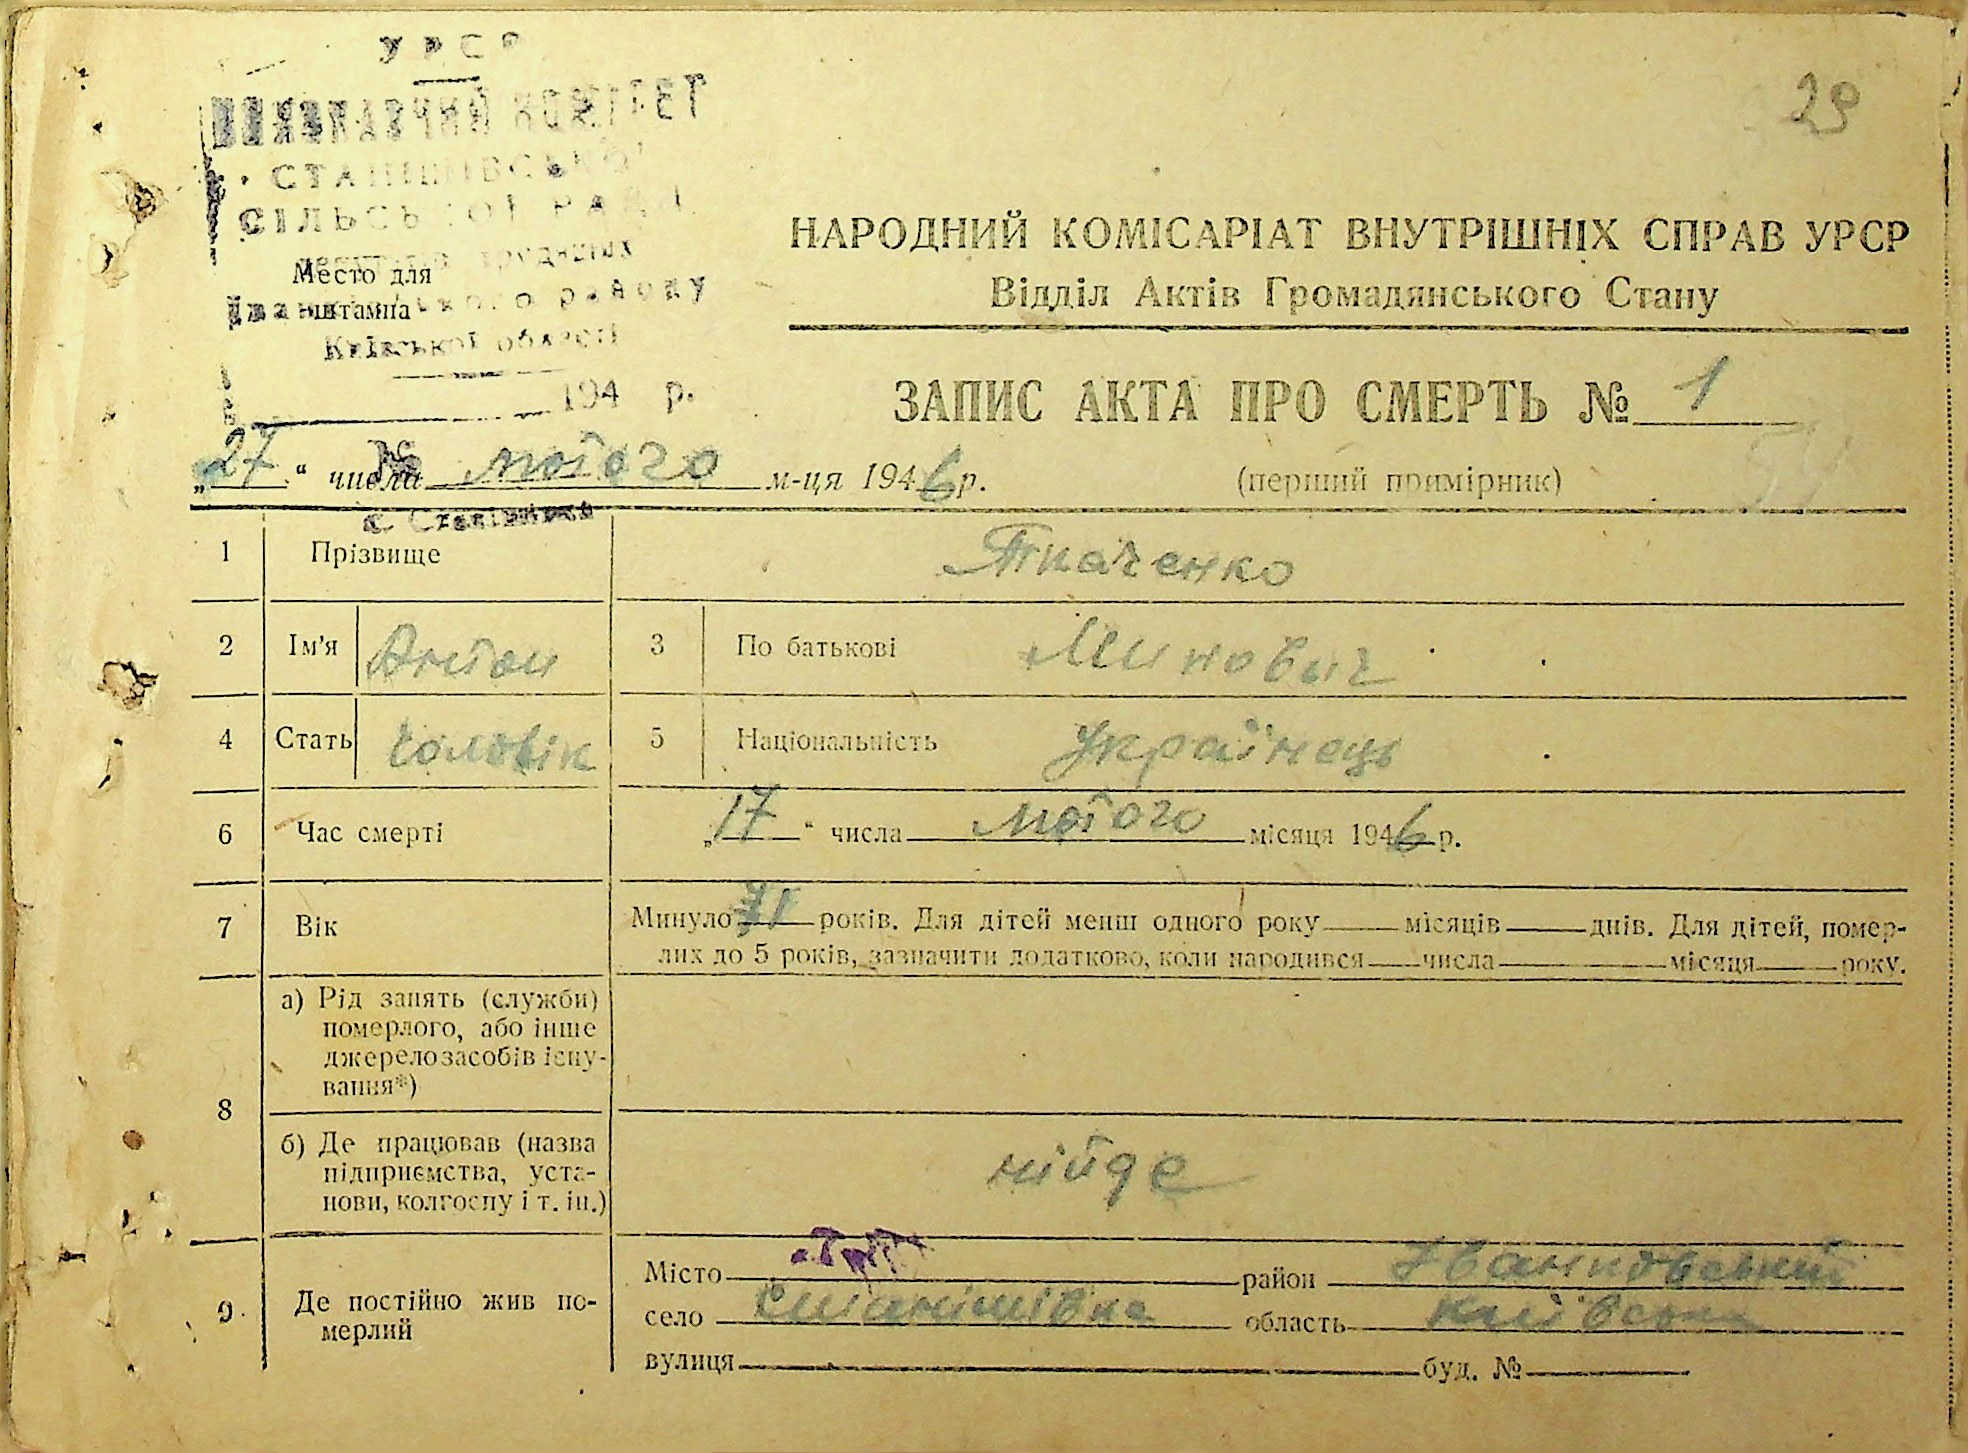 УРСР
ВИКОНАВЧИЙ КОМІТЕТ
СТАНІШІВСЬКОЇ
СІЛЬСЬКОЇ РАДИ
депутатів трудящих
Іванківського району
Київської області
Место для
штампа
194 р.
№
с. Станішівка
29
НАРОДНИЙ КОМІСАРІАТ ВНУТРІШНІХ СПРАВ УРСР
Відділ Актів Громадянського Стану
ЗАПИС АКТА ПРО СМЕРТЬ № 1
„27“ числа лютого м-ця 1946 р.
(перший примірник)
1 Прізвище Ткаченко
2 Ім'я Антон 3 По батькові Минович
4 Стать Чоловік 5 Національність Українець
6 Час смерті „17“ числа лютого місяця 1946 р.
7 Вік Минуло 71 років. Для дітей менш одного року місяців днів. Для дітей, помер-
лих до 5 років, зазначити додатково, коли народився числа місяця року.
8 а) Рід занять (служби)
померлого, або інше
джерело засобів існу-
вання*)
б) Де працював (назва
підприємства, уста-
нови, колгоспу і т. ін.)
нійде
9 Де постійно жив по-
мерлий
Місто район Іванковський
село Станішівка область Київська
вулиця буд. №